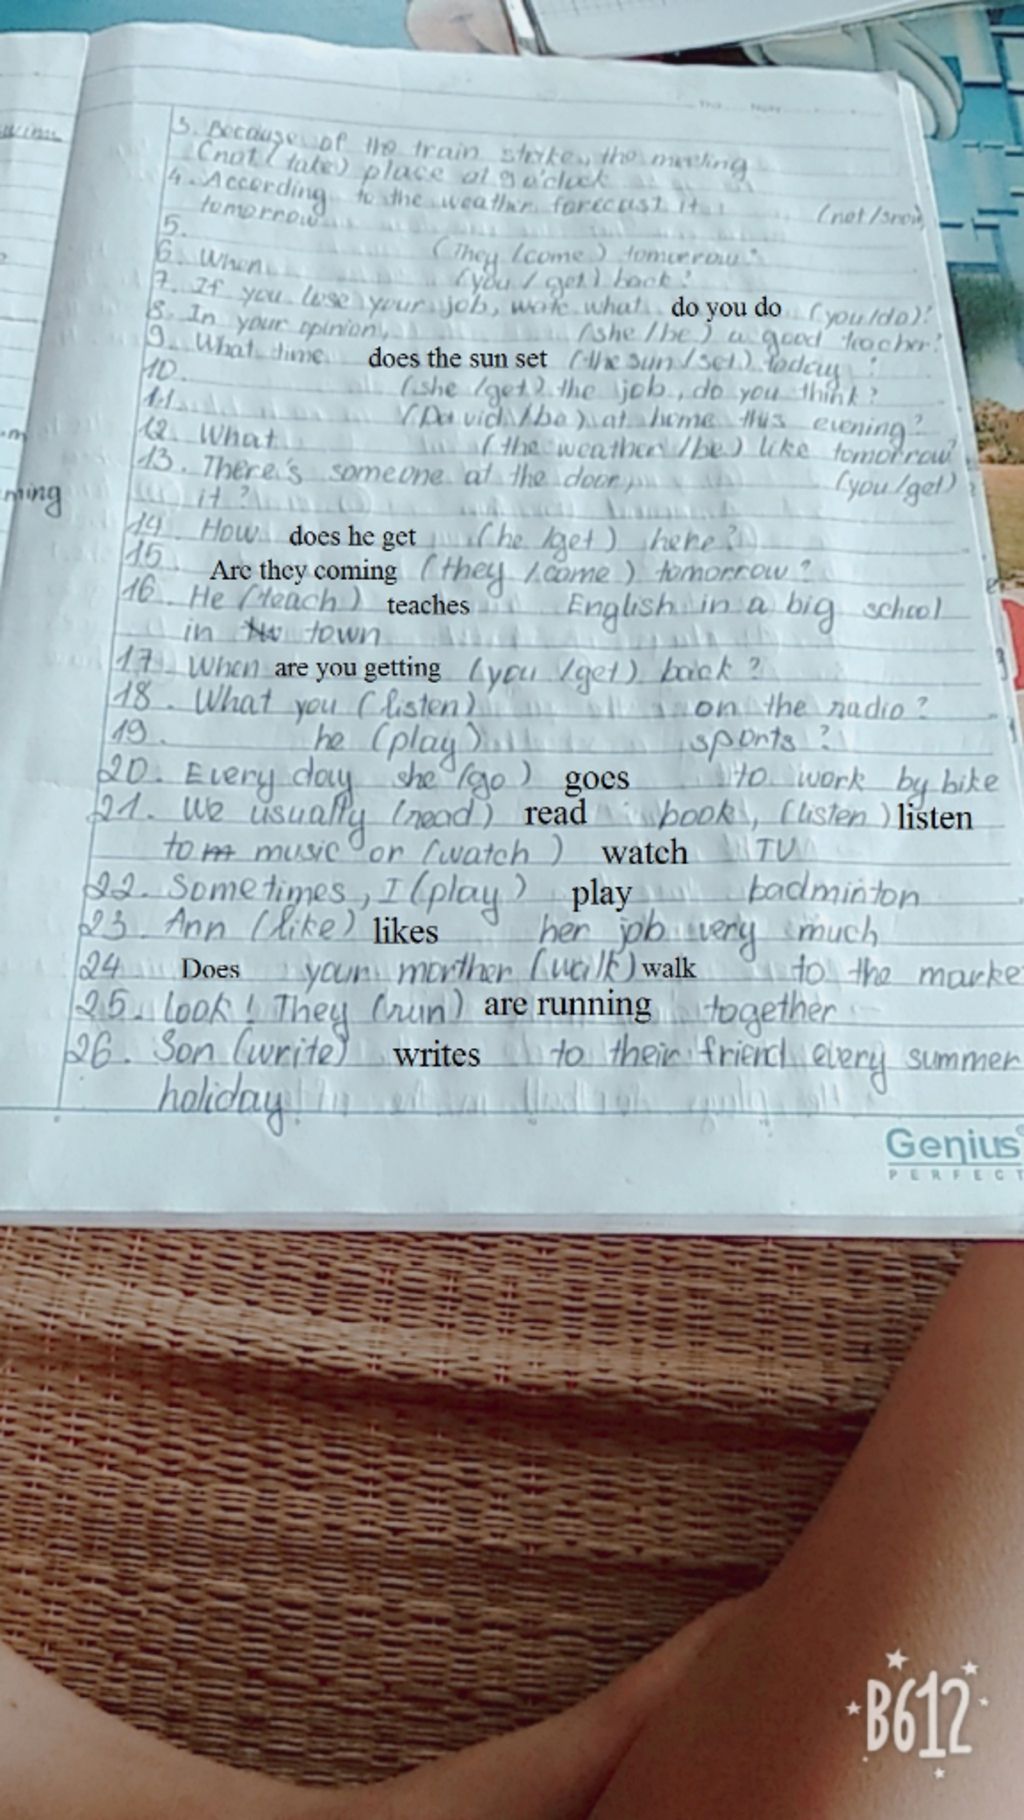 3. Because of the train strike, the meeting
(not / take) place at 9 o'clock
4. According to the weather forecast it (not/snow)
tomorrow
5. (They /come) tomorrow?
6. When (you / get) back?
7. If you lose your job, what do you do (you/do)?
8. In your opinion, (she /be) a good teacher?
9. What time does the sun set (the sun / set) today ?
10. (she /get) the job, do you think?
11. (David /be) at home this evening?
12. What (the weather /be) like tomorrow?
13. There's someone at the door, (you /get)
it ?
14. How does he get (he /get) here?
15. Are they coming (they /come) tomorrow?
16. He (teach) teaches English in a big school
in town
17. When are you getting (you /get) back ?
18. What you (listen) on the radio ?
19. he (play) sports ?
20. Every day she (go) goes to work by bike
21. We usually (read) read book, (listen) listen
to music or (watch) watch TV
22. Sometimes, I (play) play badminton
23. Ann (like) likes her job very much
24 Does your morther (walk) walk to the marke
25. Look! They (run) are running together
26. Son (write) writes to their friend every summer
holiday
Genius
PERFECT
ming
B612